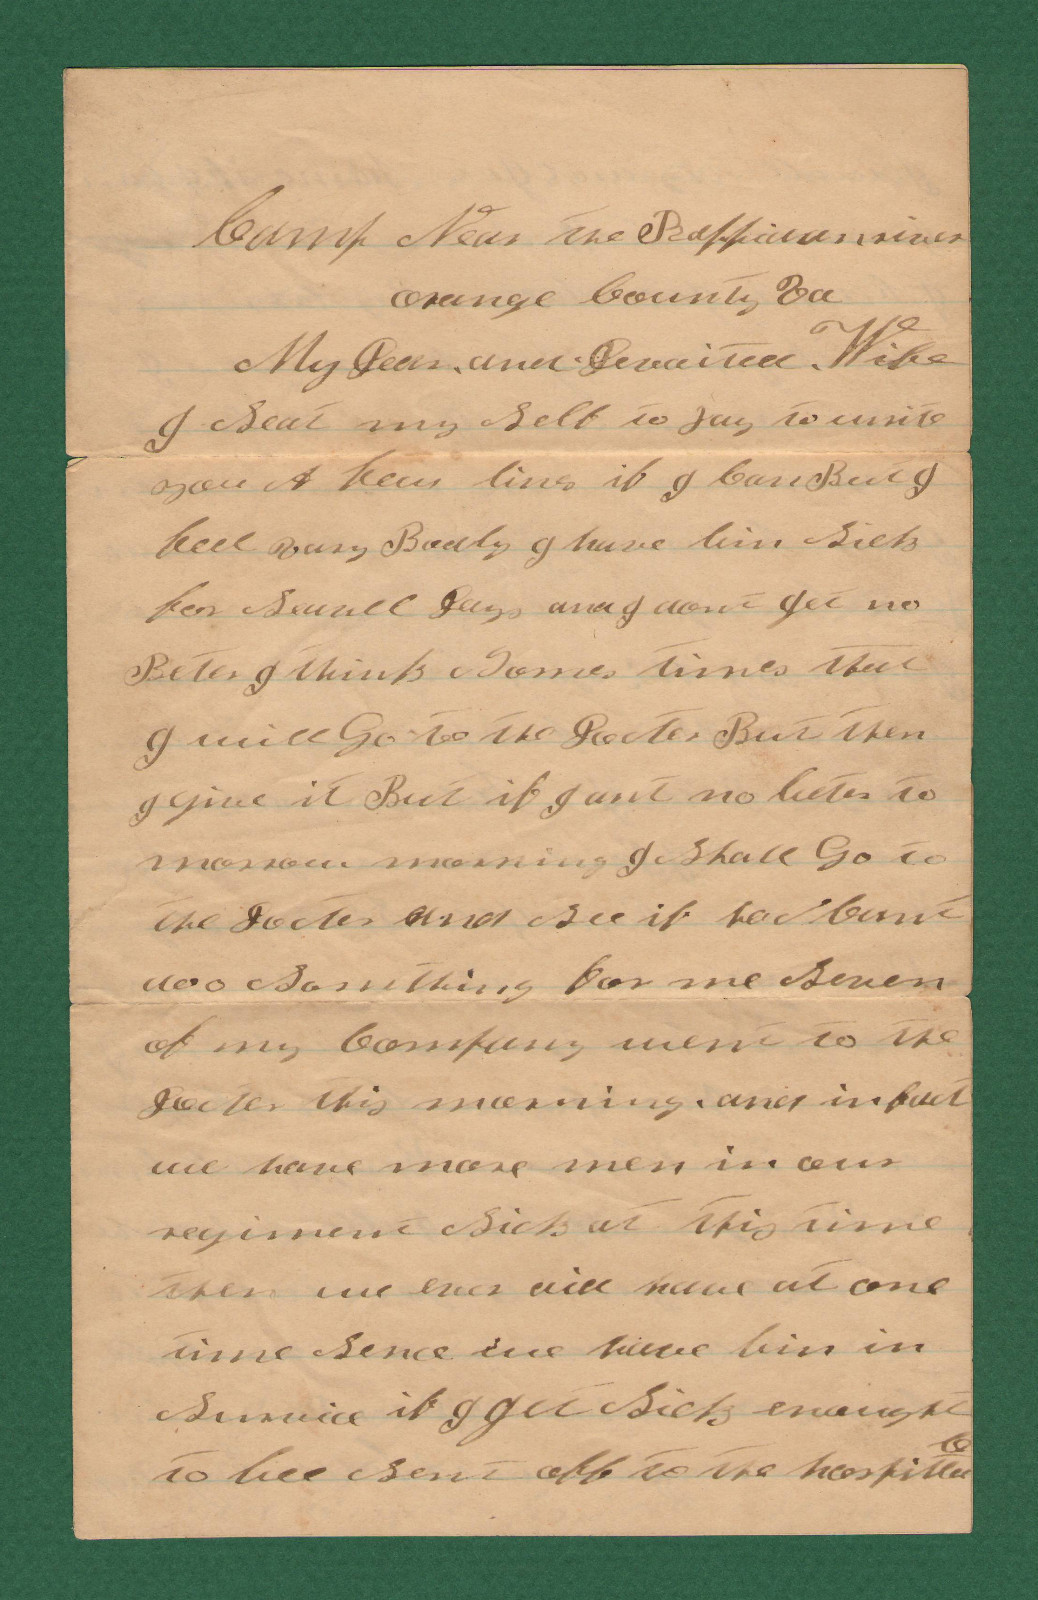 Camp Near the Rappidan river
orange County Va
My Dear and Devoited Wife
I Seat my Self to Day to write
you A few lines if I Can But I
feel vary Badly I have bin Sick
for Severll Days and I dont Get no
Beter I think Somes times that
I will Go to the Docter But then
I give it But if I ant no beter to
morrow morning I Shall Go to
the Docter and See if hee Cant
doo Somthing for me Seven
of my Company went to the
Docter this morning and in fact
we have more men in our
regiment Sick at this time
then we ever did have at one
time Sence we have bin in
Survice if I get Sick enought
to bee Sent off to the hospittle